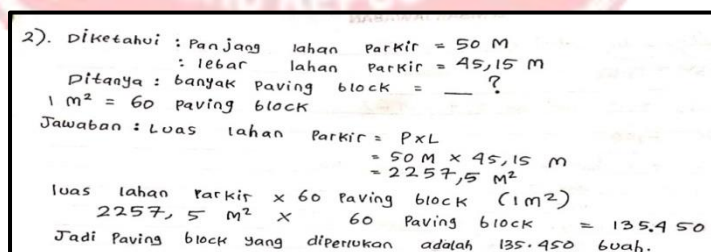 2). Diketahui : Panjang lahan Parkir = 50 M
: lebar lahan Parkir = 45,15 m
Ditanya : banyak Paving block = __ ?
1 m² = 60 paving block
Jawaban : Luas lahan Parkir = P x L
= 50 M x 45,15 m
= 2257,5 M²
luas lahan Parkir x 60 Paving block (1m²)
2257,5 m² x 60 Paving block = 135.450
Jadi Paving block yang diperlukan adalah 135.450 buah.